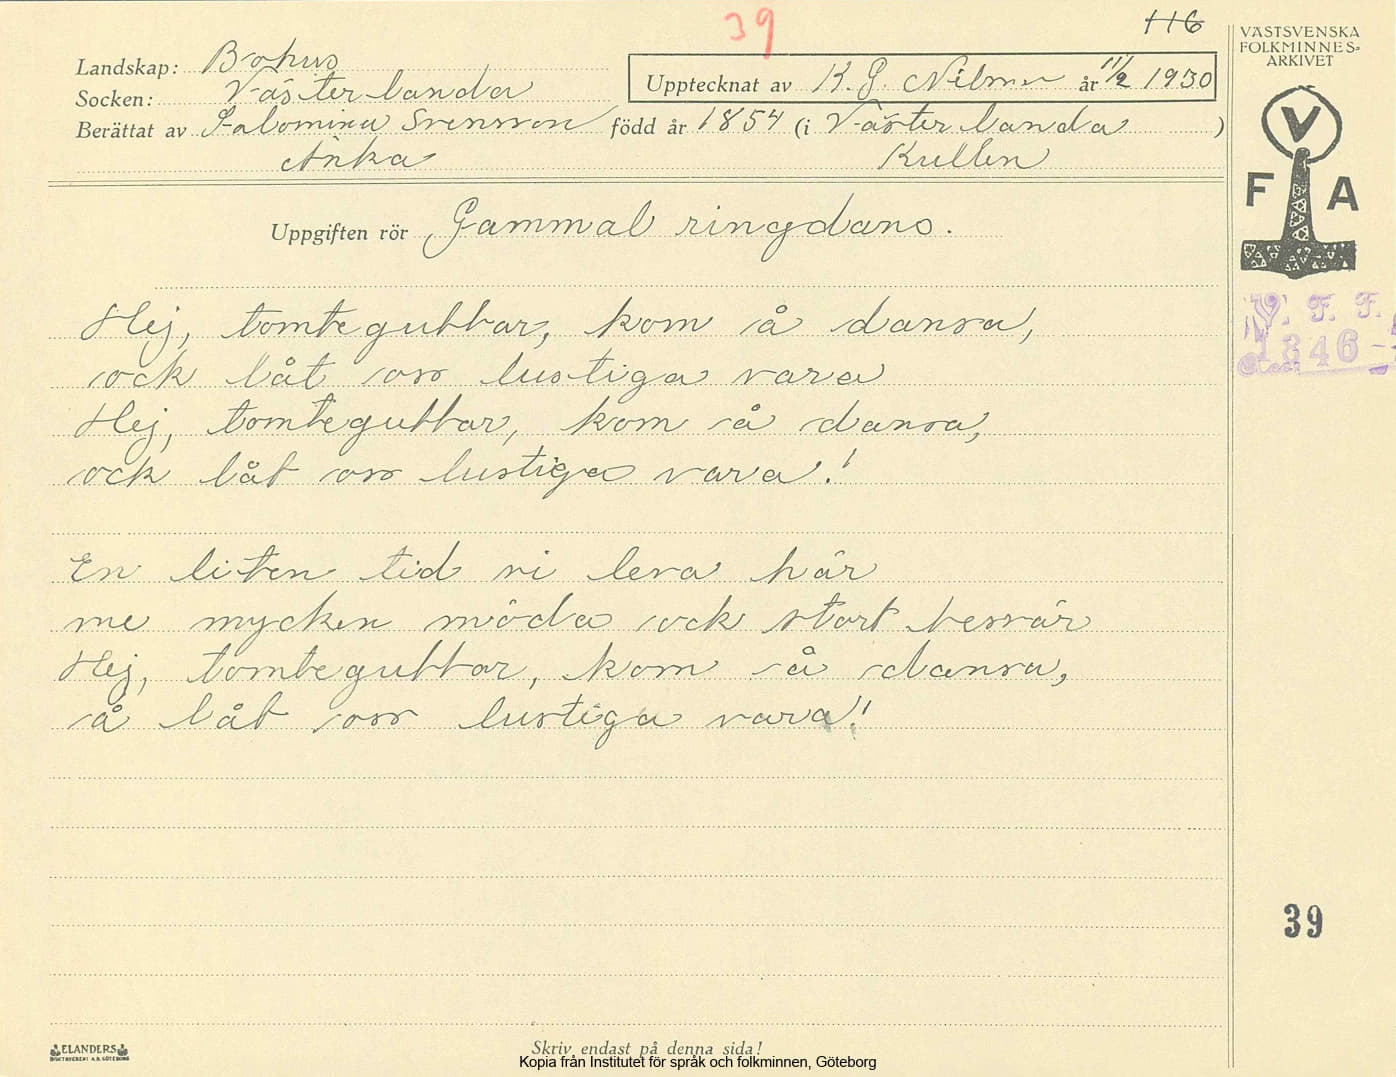 39
116
VÄSTSVENSKA
FOLKMINNES-
ARKIVET
Landskap: Bohus
Upptecknat av K. G. Nilson år 11/2 1930
Socken: Västerlanda
Berättat av Salomina Svensson född år 1854 (i Västerlanda )
Änka Kullen
V
F A
Uppgiften rör Gammal ringdans.
V. F. F.
1346
Hej, tomtegubbar, kom så dansa,
ock låt oss lustiga vara
Hej, tomtegubbar, kom så dansa,
ock låt oss lustiga vara!
En liten tid vi leva här
me mycken möda ock stort besvär
Hej, tomtegubbar, kom så dansa,
så låt oss lustiga vara!
39
ELANDERS
BOKTRYCKERI A.B. GÖTEBORG
Skriv endast på denna sida!
Kopia från Institutet för språk och folkminnen, Göteborg